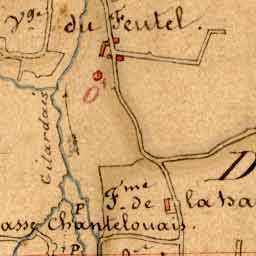 Vge
du Feutel.
O
Gilardais
P
D
Fme
F. de la ha
asse Chantelouais.
P